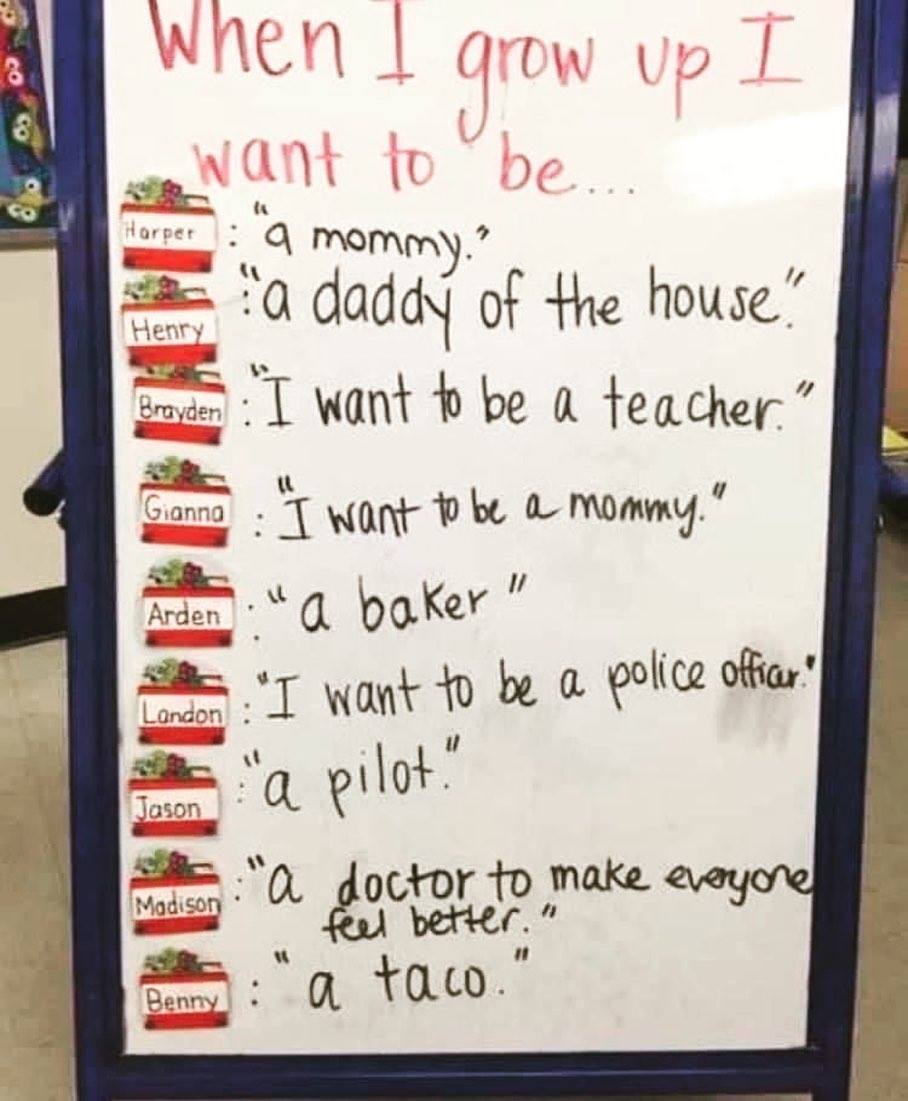 When I grow up I
want to be...
Harper : "a mommy."
Henry : "a daddy of the house."
Brayden : "I want to be a teacher."
Gianna : "I want to be a mommy."
Arden : "a baker"
Landon : "I want to be a police officar."
Jason : "a pilot."
Madison : "a doctor to make everyone
feel better."
Benny : "a taco."